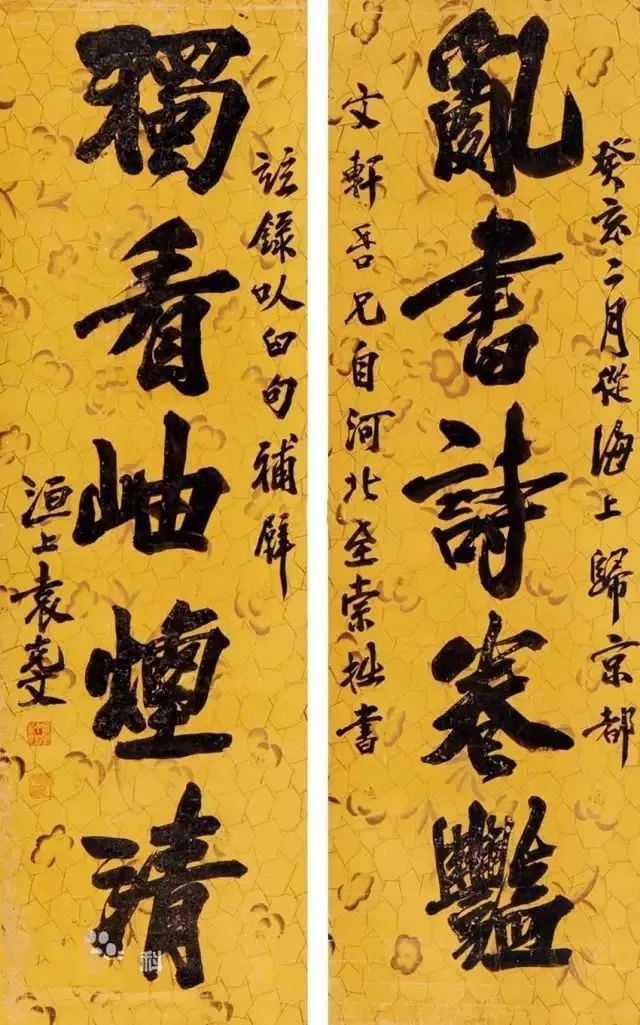 癸亥二月從海上歸京都
亂書詩卷豔
文軒吾兄自河北至索拙書
錄以臼句補壁
獨看岫煙清
洹上袁克文
科